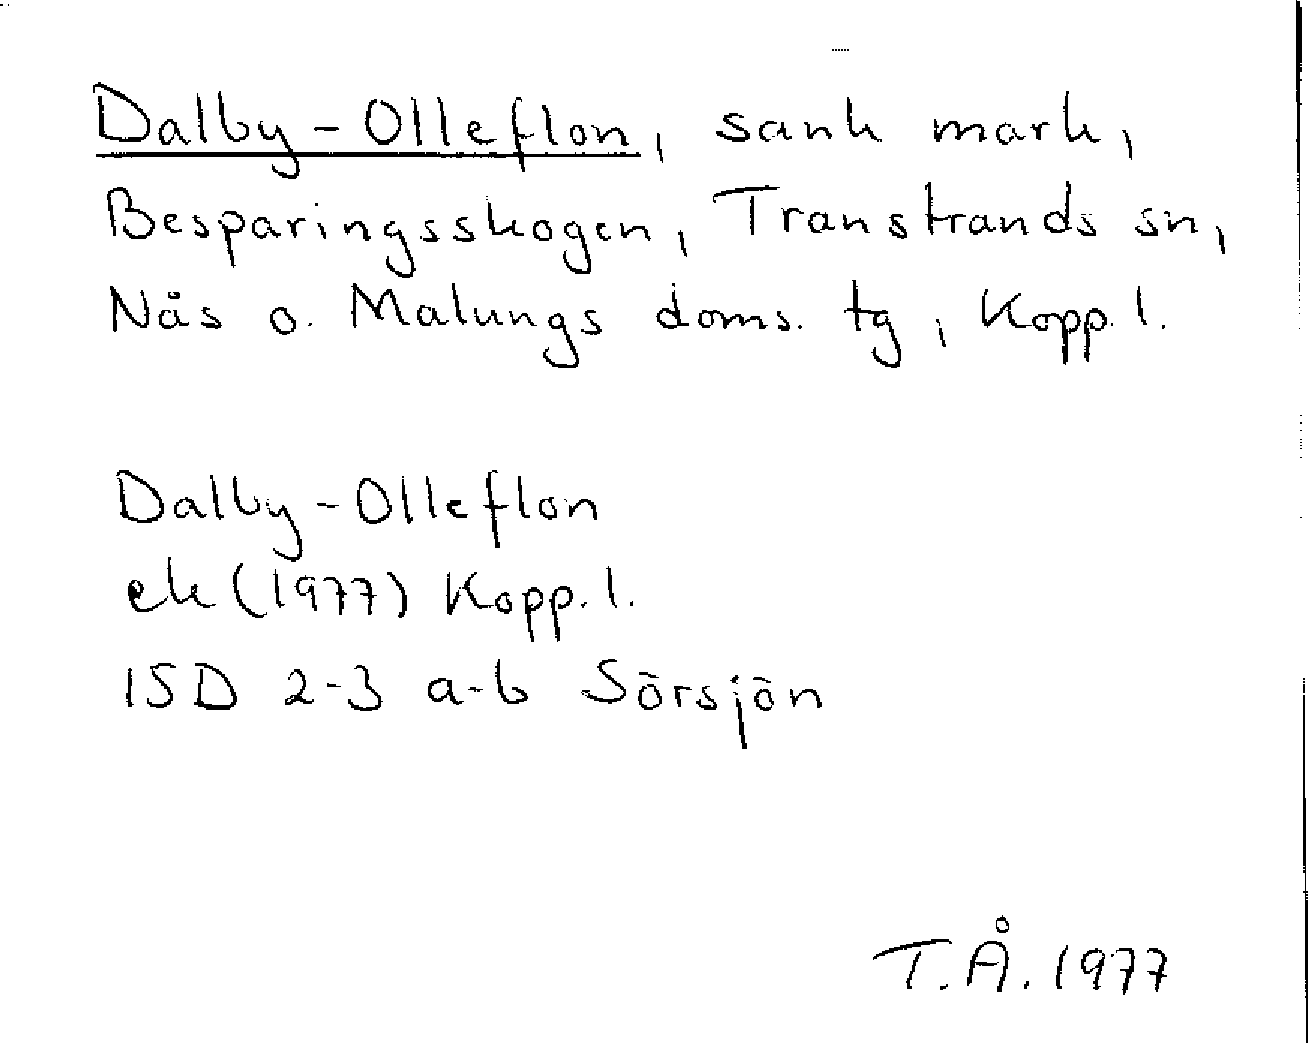 Dalby-Olleflon, sank mark,
Besparingsskogen, Transtrands sn,
Nås o. Malungs doms. tg, Kopp. l.
Dalby-Olleflon
ek (1977) Kopp. l.
15D 2-3 a-b Sörsjön
T.Å. 1977